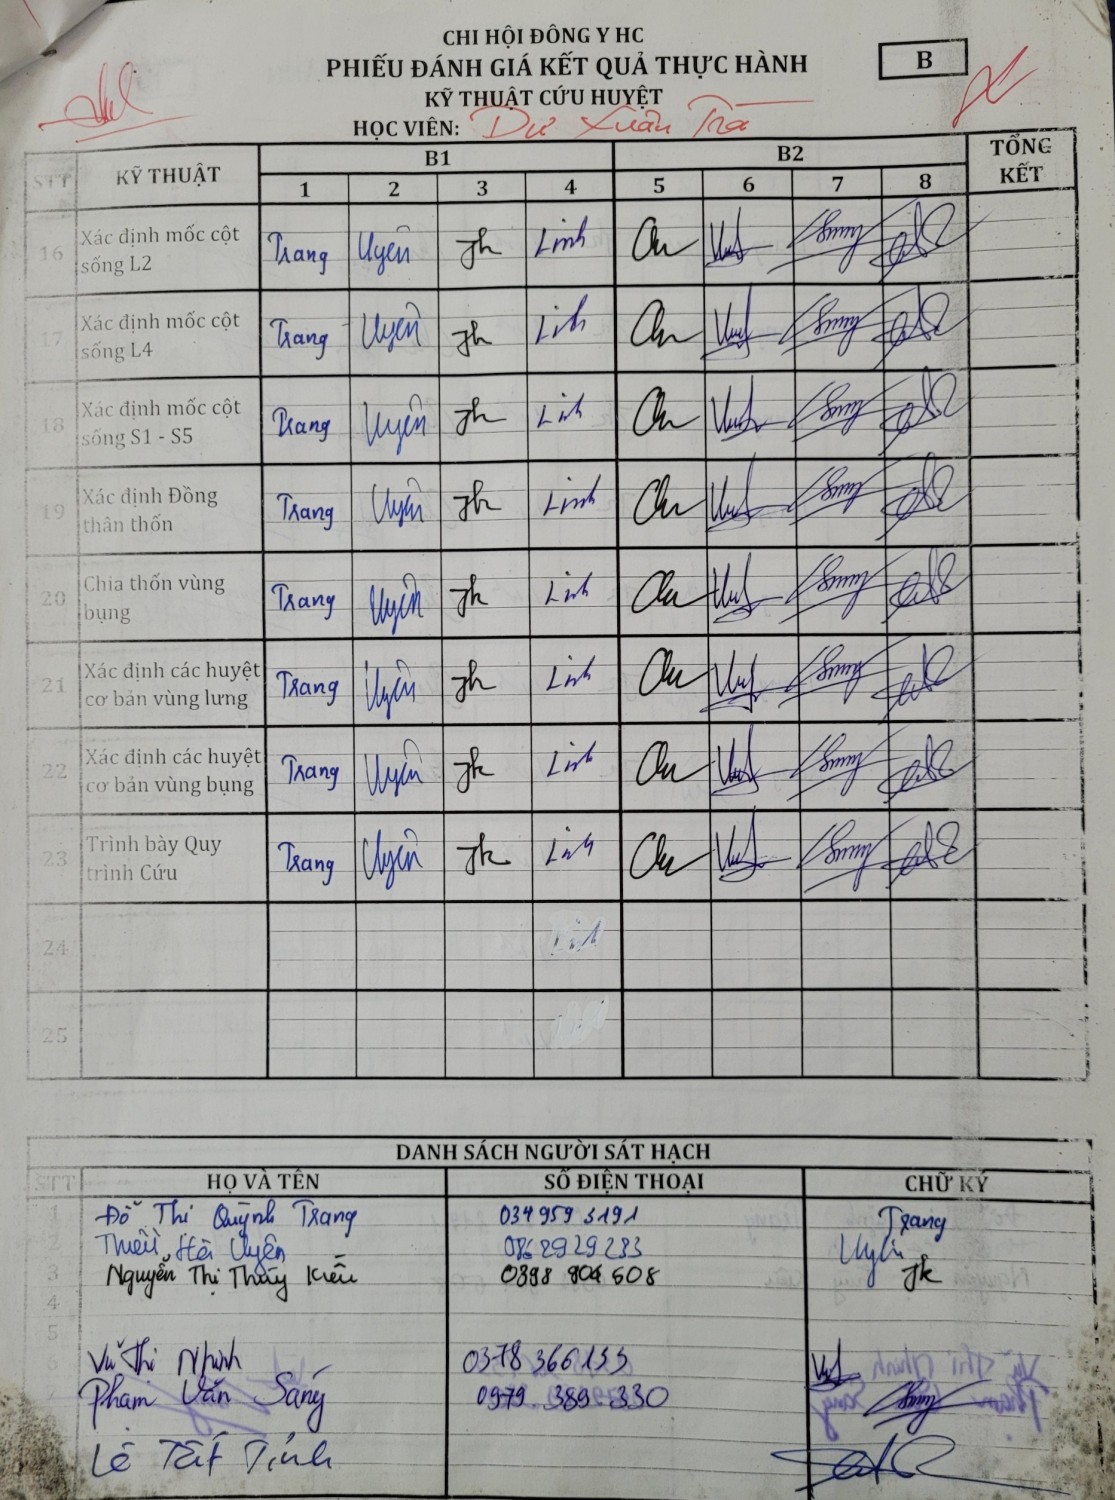 CHI HỘI ĐÔNG Y HC
PHIẾU ĐÁNH GIÁ KẾT QUẢ THỰC HÀNH
B
KỸ THUẬT CỨU HUYỆT
HỌC VIÊN: Dư Xuân Trà
STT KỸ THUẬT B1 B2 TỔNG KẾT
1 2 3 4 5 6 7 8
16 Xác định mốc cột sống L2 Trang Uyên Jk Linh
17 Xác định mốc cột sống L4 Trang Uyên Jk Linh
18 Xác định mốc cột sống S1 - S5 Trang Uyên Jk Linh
19 Xác định Đồng thân thốn Trang Uyên Jk Linh
20 Chia thốn vùng bụng Trang Uyên Jk Linh
21 Xác định các huyệt cơ bản vùng lưng Trang Uyên Jk Linh
22 Xác định các huyệt cơ bản vùng bụng Trang Uyên Jk Linh
23 Trình bày Quy trình Cứu Trang Uyên Jk Linh
24
25
DANH SÁCH NGƯỜI SÁT HẠCH
STT HỌ VÀ TÊN SỐ ĐIỆN THOẠI CHỮ KÝ
1 Đỗ Thị Quỳnh Trang 034 959 3191 Trang
Hải Uyên 0862929233 Uyên
3 Nguyễn Thị Thúy Kiều 0398 904 608 Jk
4
5
6 Vũ Thị Nhinh 0378 366 133
7 Phạm Văn Sáng 0979 389 330
Lê Tất Tỉnh